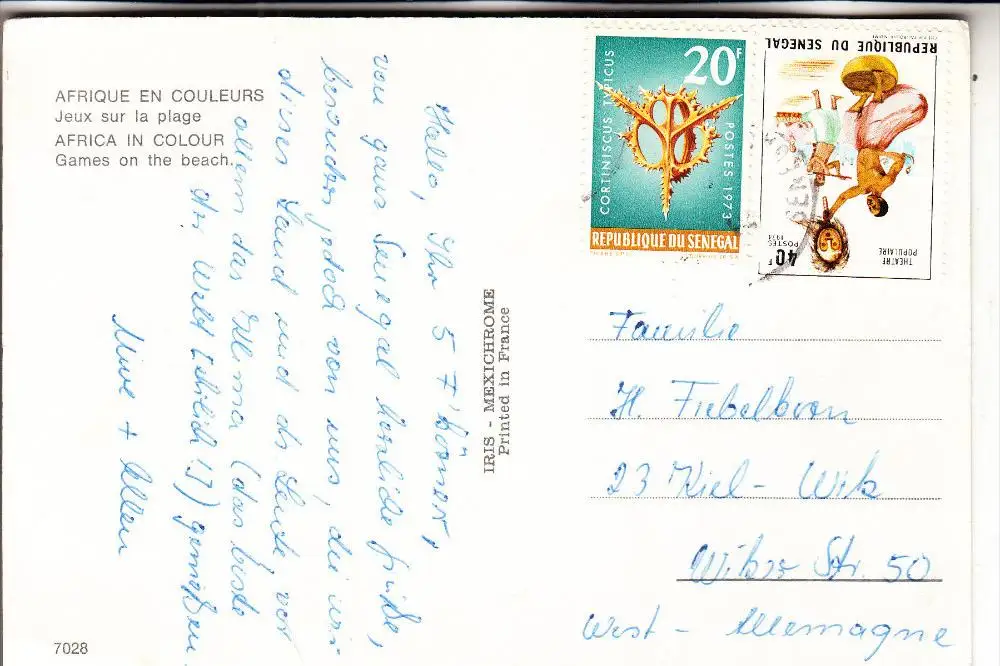 AFRIQUE EN COULEURS
Jeux sur la plage
AFRICA IN COLOUR
Games on the beach.
Hallo, Ihr 5
von ganz Senegal herzliche Grüße,
besonders jedoch von uns, die wir
dieses Land und die Leute vor
allem das Klima (das beste
der Welt [ehrlich!]) genießen.
+ Ellen
7028
IRIS - MEXICHROME
Printed in France
20F
CORTINISCUS TYPICUS
POSTES 1973
REPUBLIQUE DU SENEGAL
REPUBLIQUE DU SENEGAL
THEATRE
POPULAIRE
POSTES
40F
Familie
H.
23 Kiel-Wik
Str. 50
West-Allemagne